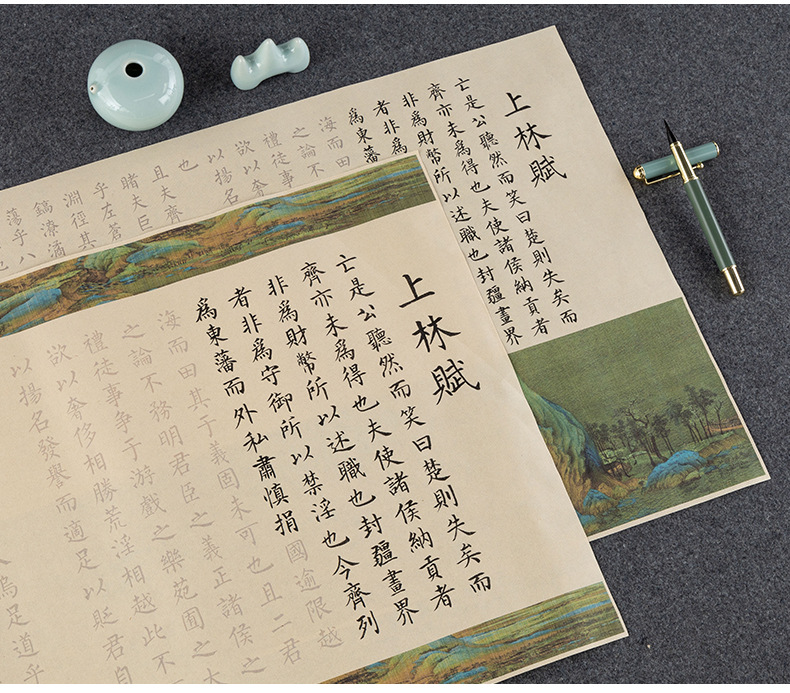 上林賦
亡是公聽然而笑曰楚則失矣而
齊亦未爲得也夫使諸侯納貢者
非爲財幣所以述職也封疆畫界
者非爲
爲東藩
海而田
之論不
禮徒事
欲以奢
以揚名
也
且夫齊
睹夫巨
乎左蒼
淵徑其
鎬潦潏
蕩乎八
上林賦
亡是公聽然而笑曰楚則失矣而
齊亦未爲得也夫使諸侯納貢者
非爲財幣所以述職也封疆畫界
者非爲守御所以禁淫也今齊列
爲東藩而外私肅慎捐國逾限越
海而田其于義固未可也且二君
之論不務明君臣之義正諸侯之
禮徒事爭于游戲之樂苑囿之大
欲以奢侈相勝荒淫相越此不
以揚名發譽而適足以貶君自
烏足道乎